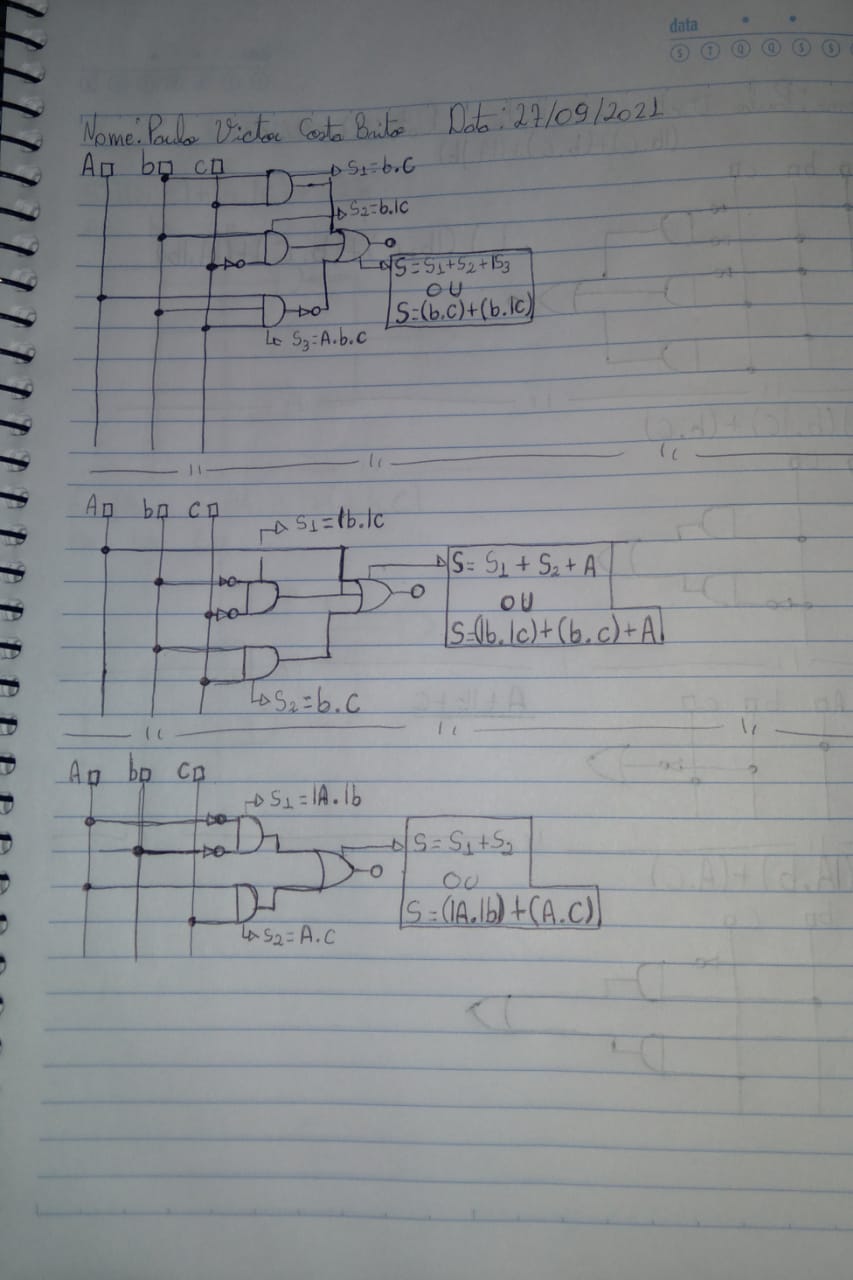 data
S T Q Q S S
Nome: Paulo Victor Costa Brito Data: 27/09/2021
A b c
S1=b.C
S2=b.1c
S=S1+S2+1S3
OU
S=(b.c)+(b.1c)
S3=A.b.C
A b c
S1=1b.1c
S= S1 + S2 + A
OU
S=(1b.1c)+(b.c)+A
S2=b.C
A b C
S1=1A.1b
S= S1+S2
OU
S=(1A.1b)+(A.C)
S2=A.C